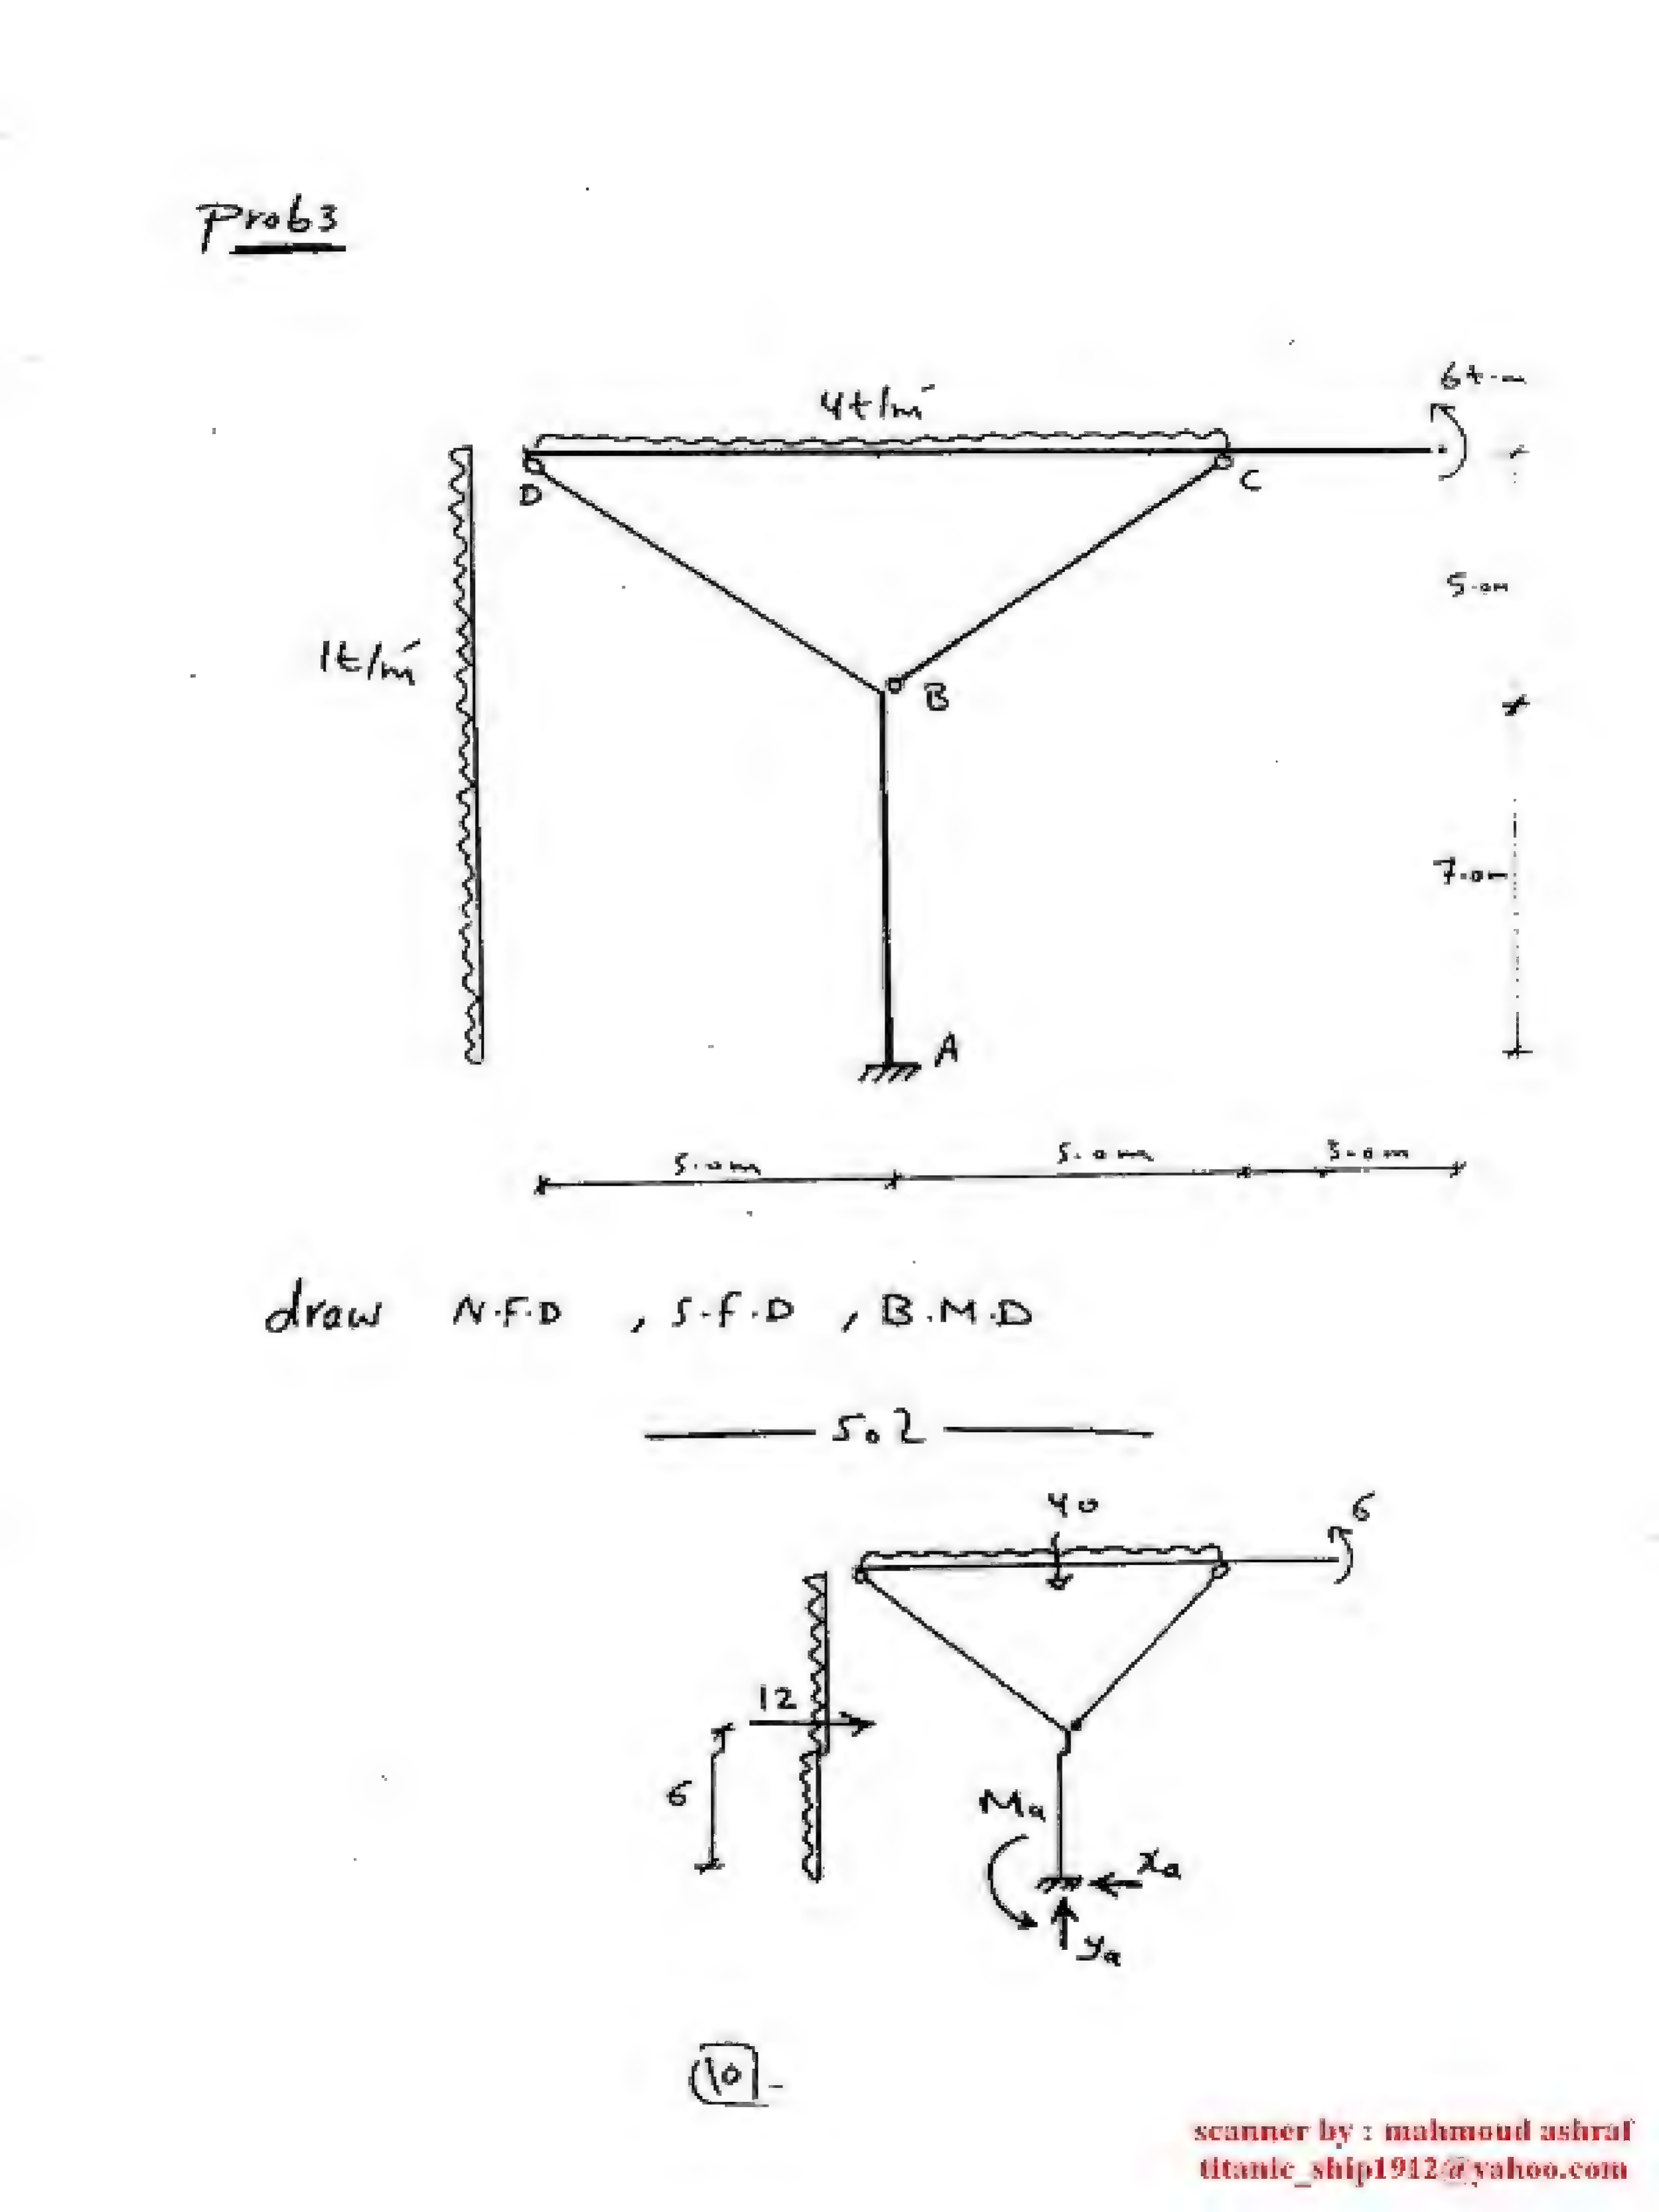 Prob3
4t/m'
6t.m
D
C
5.0m
1t/m'
B
7.0m
A
5.0m 5.0m 3.0m
draw N.F.D , S.F.D , B.M.D
Sol
40
6
12
6
Ma
Xa
ya
10
scanner by : mahmoud ashraf
titanic_ship1912@yahoo.com